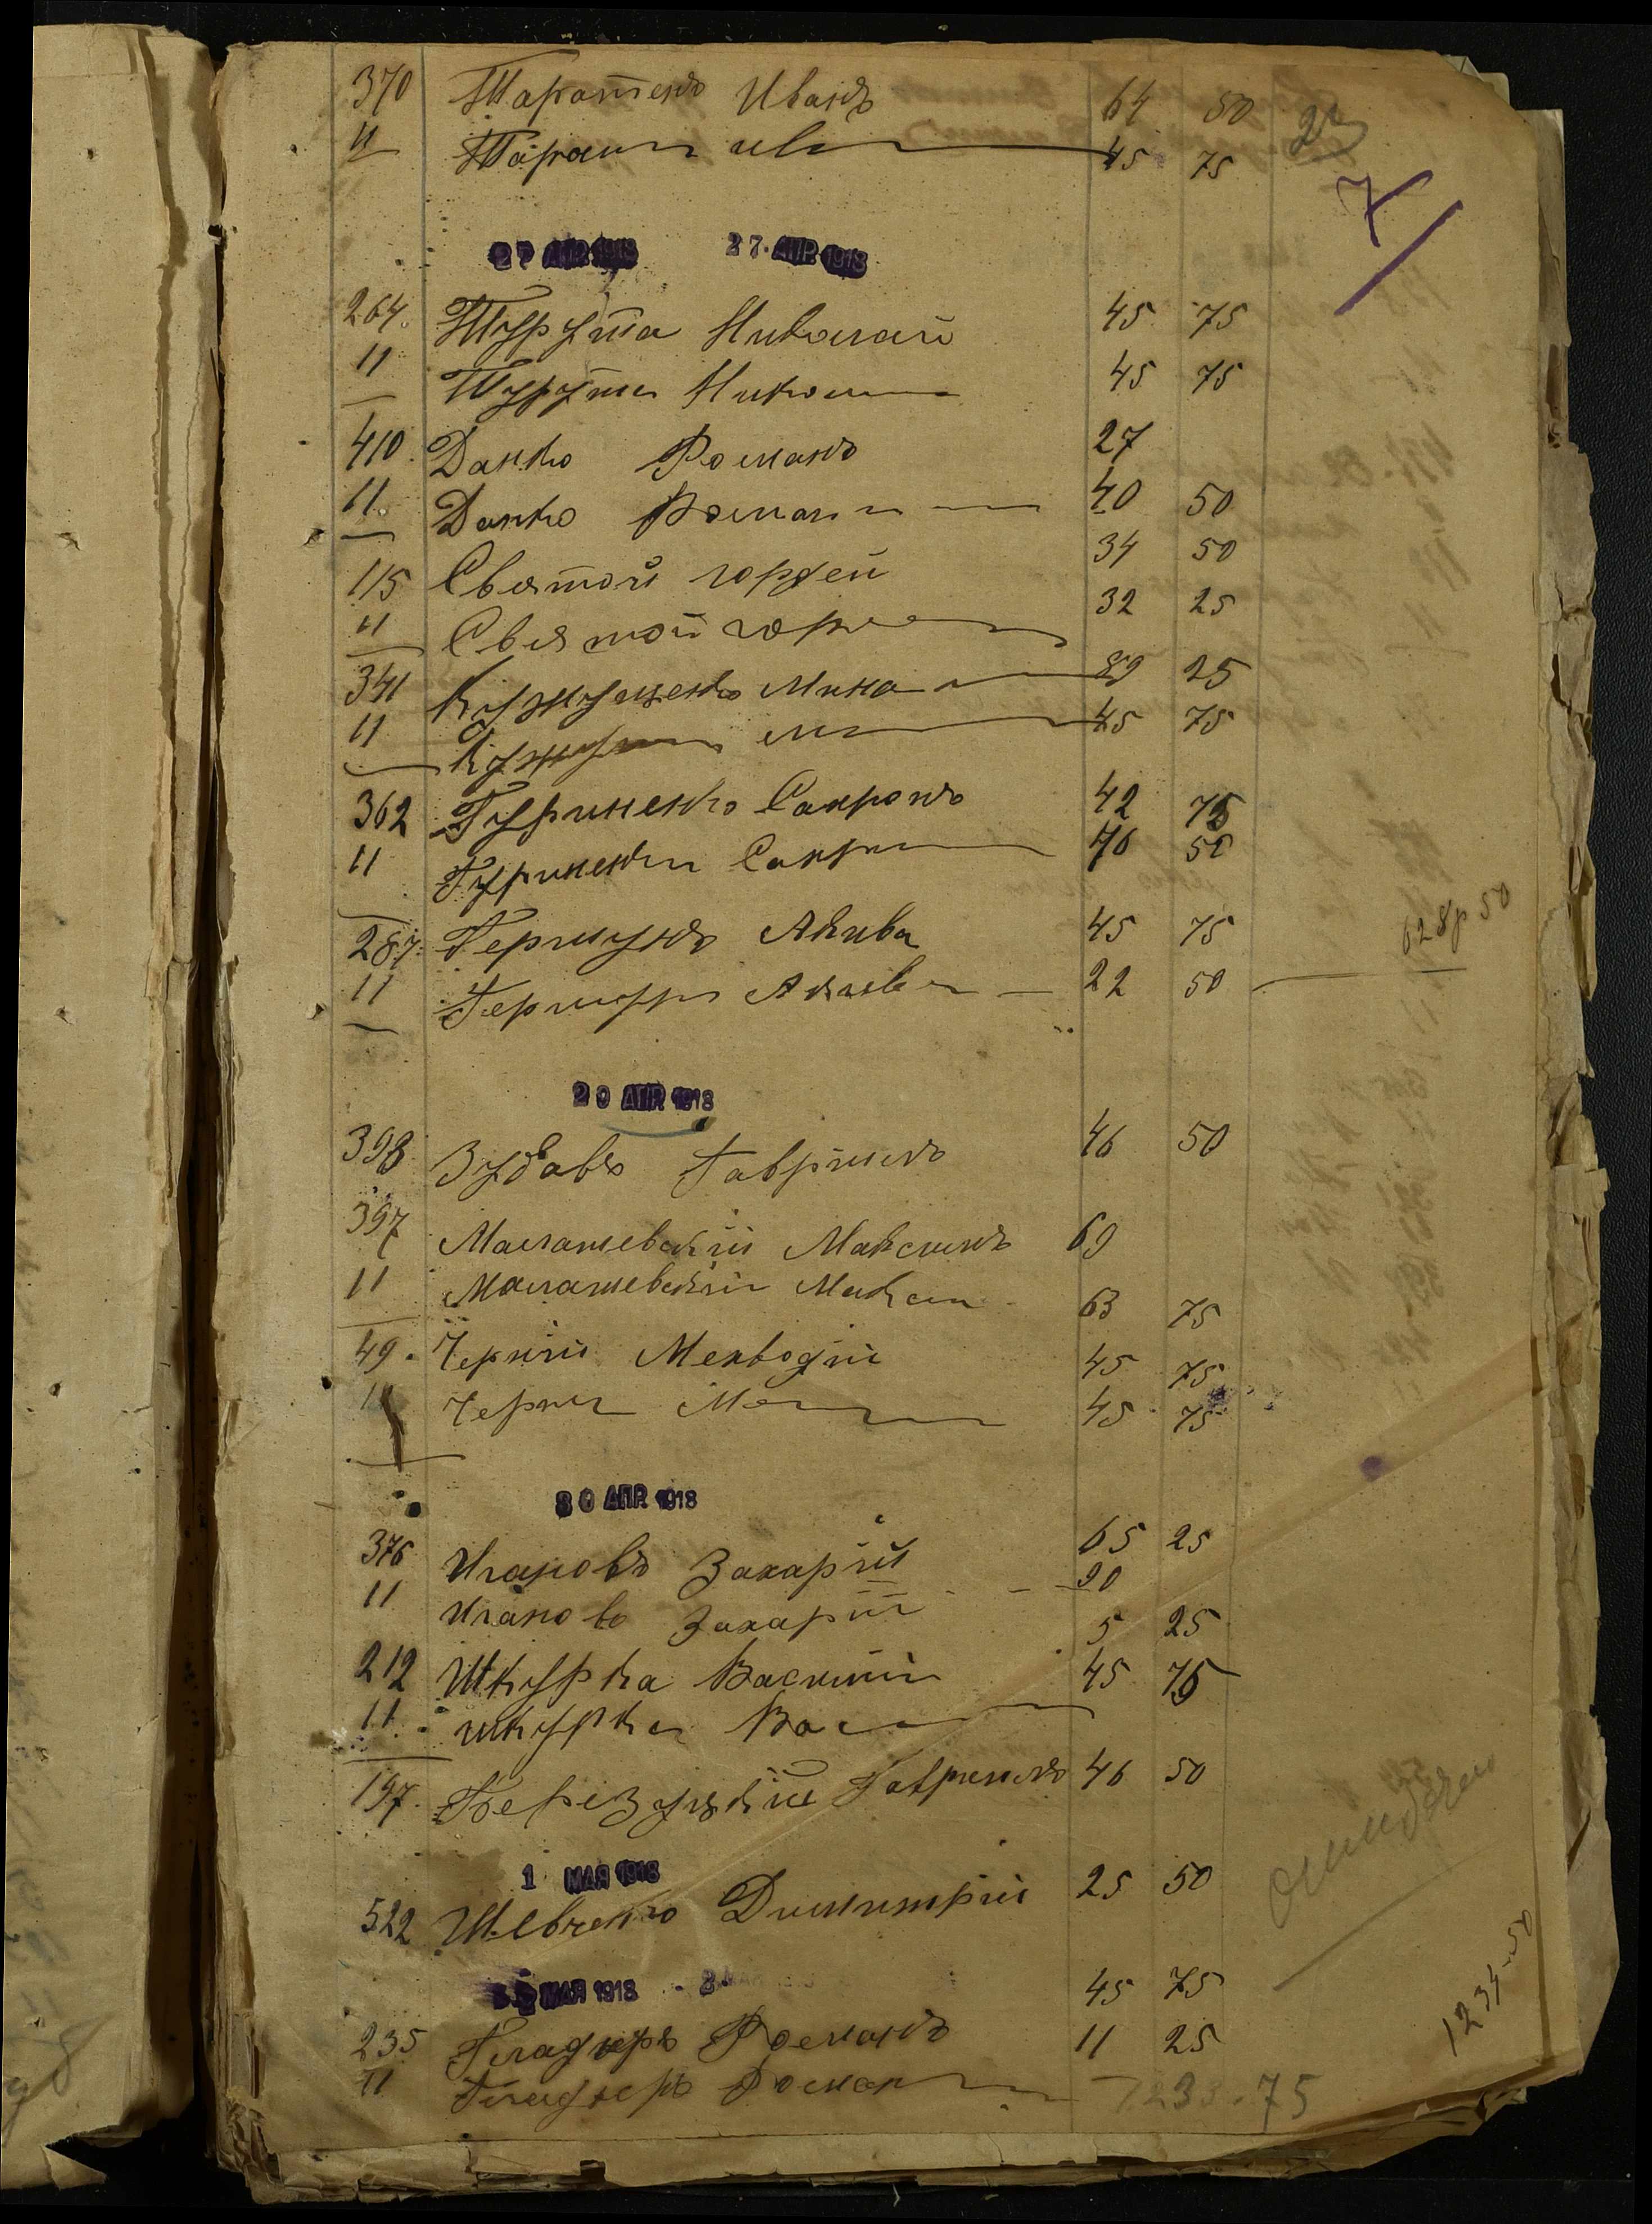 370 Таратенъ Иванъ 64 50
11 Таран Ив 45 75
23
7
27 АПР 1918 27. АПР 1918
264. Шурута Николай 45 75
11 Шурута Нико 45 75
410. Данко Романъ 27
11. Данко Роман 40 50
115 Святой Гордей 34 50
11 Святой Горде 32 25
341 Кужущенко Мина 89 25
11 45 75
362 Гуриненко Сапронъ 42 75
11 Гуриненко Сапр 50
287. Гершунъ Акива 45 75
11 Акива 22 50 628р 50
20 АПР 1918
398 Зубовъ Гаврилъ 46 50
397 Малашевскій Максимъ 69
11 Малашевскій Максим 63 75
49. Черній Мефодій 45 75
11 Черни Ме 45 75
30 АПР 1918
376 Игановъ Захарій 65 25
11 Игановъ Захарій 90
5 25
212 Шкурка Василій 45 75
11. Шкурка Вас
197. Березунскій Гаврилъ 46 50
1 МАЯ 1918
522 Шевченко Димитрій 25 50
2 МАЯ 1918 45 75
235 Гладиръ Романъ 11 25
11 Гладиръ Роман 1233.75
1234-50